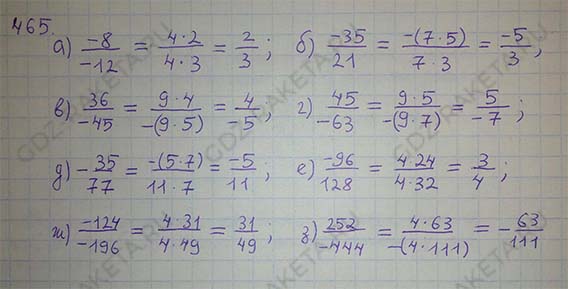 465.
а) -8/-12 = 4·2/4·3 = 2/3; б) -35/21 = -(7·5)/7·3 = -5/3;
в) 36/-45 = 9·4/-(9·5) = 4/-5; г) 45/-63 = 9·5/-(9·7) = 5/-7;
д) -35/77 = -(5·7)/11·7 = -5/11; е) -96/128 = 4·24/4·32 = 3/4;
ж) -124/-196 = 4·31/4·49 = 31/49; з) 252/-444 = 4·63/-(4·111) = -63/111